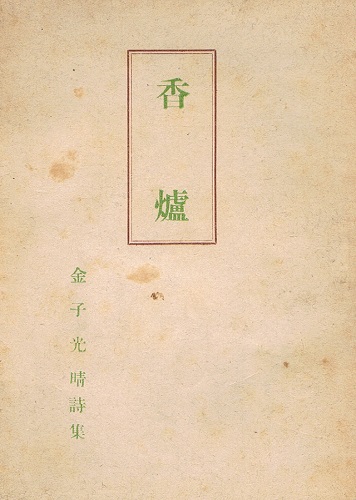 香爐
金子光晴詩集